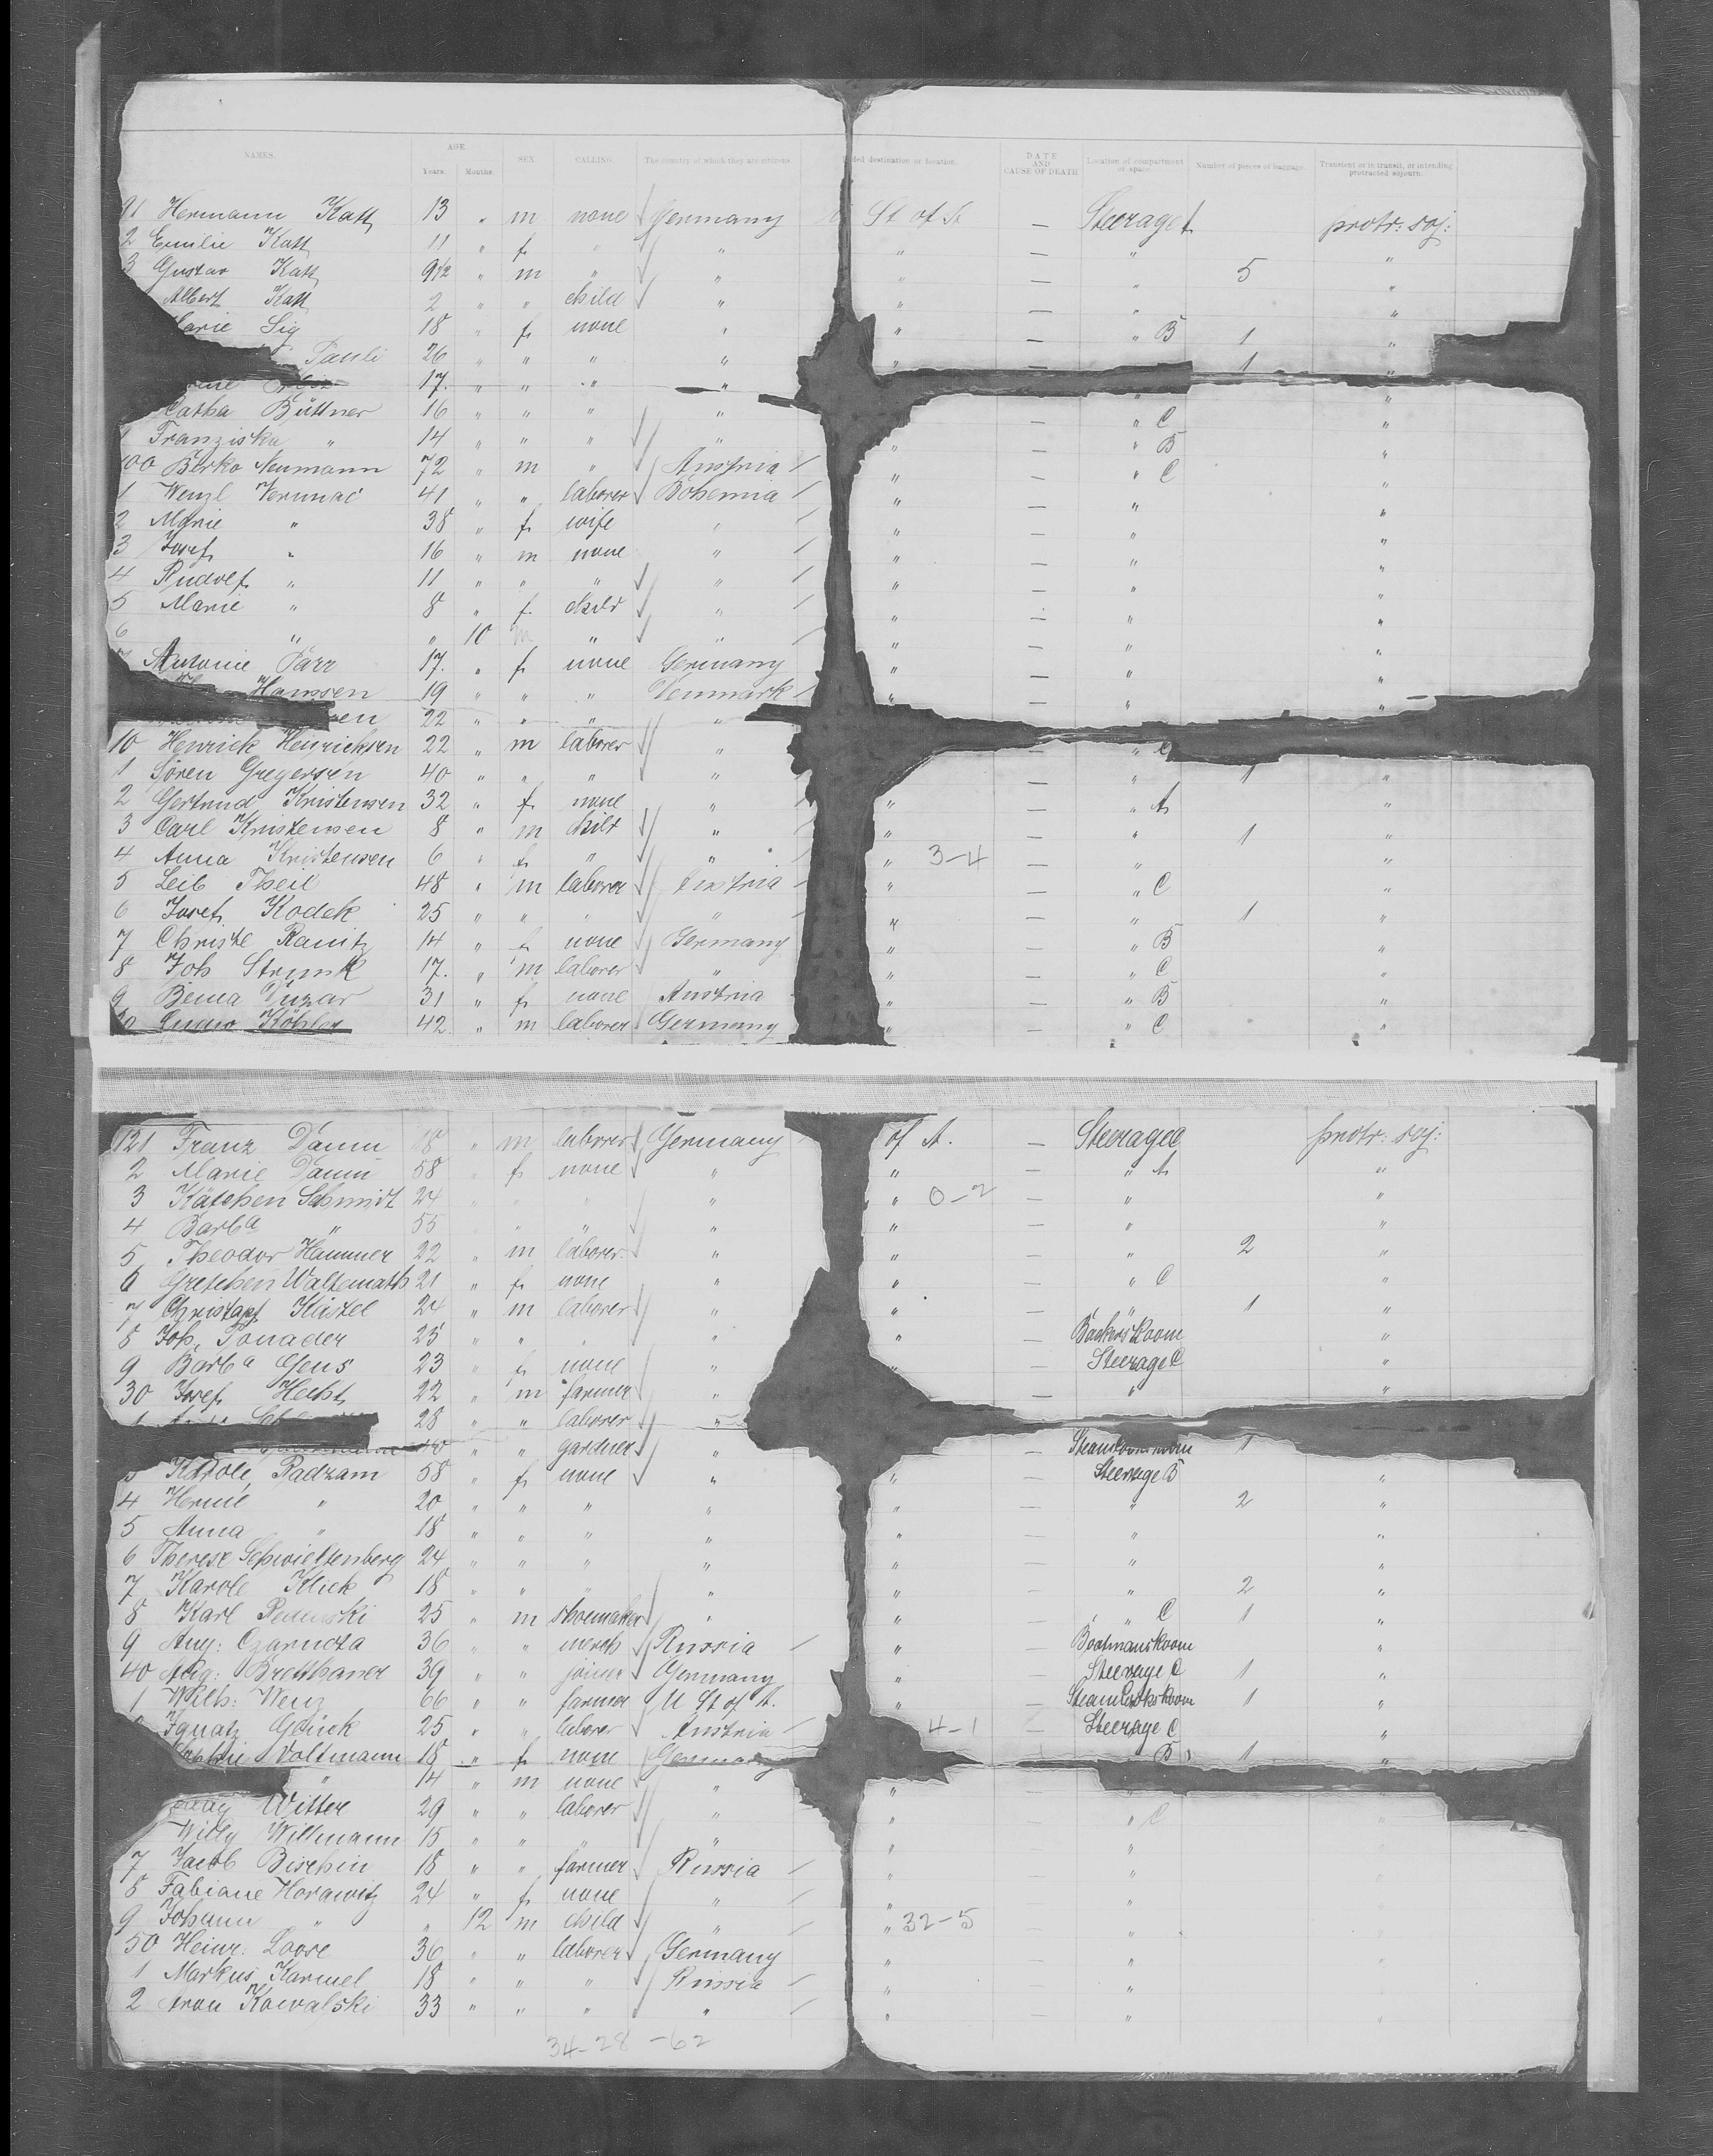 NAMES. AGE SEX CALLING. The country of which they are citizens. ded destination or location. DATE AND CAUSE OF DEATH Location of compartment or space. Number of pieces of baggage. Transient or in transit, or intending protracted sojourn.
Years. Months.
91 Hermann Katt 13 " m none Germany St of A — Steerage A protr: soj:
2 Emilie Katt 11 " f " " " — " "
3 Gustav Katt 9 1/2 " m " " " — " 5 "
Albert Katt 2 " " child " " — " "
Marie Sig 18 " f none " " — " B 1 "
Pauli 26 " " " " " — 1 "
17. " " " " " "
Catha Büttner 16 " " " " — " C "
1 Franziska " 14 " " " " " — " B "
100 Berko Neumann 72 " m " Austria " — " C "
1 Wenzl Vermac 41 " " laborer Bohemia " — " "
2 Marie " 38 " f wife " " — " "
3 Josef " 16 " m none " " — " "
4 Rudolf " 11 " " " " " — " "
5 Marie " 8 " f child " " — " "
6 " " 10 m " " " — " "
Antonie Parr 17. " f none Germany " — " "
Hansen 19 " " " Denmark " — " "
en 22 " " " "
10 Henrick Heinricksen 22 " m laborer " — " C
1 Sören Gregersen 40 " " " " — " 1 "
2 Gertrud Kristensen 32 " f none " " — " A "
3 Carl Kristensen 8 " m child " " — " 1 "
4 Anna Kristensen 6 " f " " " 3-4 — " "
5 Leib Theil 48 " m laborer Austria " — " C "
6 Josef Kodek 25 " " " " " — " 1 "
7 Christe Ranitz 14 " f none Germany " — " B "
8 Joh Strunk 17. " m laborer " " — " C "
9 Bema 31 " f none Austria " — " B "
20 Köhler 42 " m laborer Germany " — " C "
121 Franz Damm 18 " m laborer Germany of A. — Steerage C protr: soj:
2 Marie Damm 58 " f none " " — " A "
3 Kätchen Schmidt 24 " " " " " 0-2 — " "
4 Barba " 55 " " " " " — " "
5 Theodor Hammer 22 " m laborer " " — " 2 "
6 Gretchen Waltemath 21 " f none " " — " C "
7 Christopf Küstel 24 " m laborer " " — " 1 "
8 Joh. Ponader 25 " " " " " — Bäckers Room "
9 Barba Gens 23 " f none " " — Steerage C "
30 Josef Hecht 22 " m farmer " — " "
1 28 " " laborer "
40 " " gardner " — 1
3 Karole Radzam 58 " f none " " — Steerage B "
4 Hermie " 20 " " " " " — " 2 "
5 Anna " 18 " " " " " — " "
6 Therese Schwieltenberg 24 " " " " " — " "
7 Karole Klick 18 " " " " " — " 2 "
8 Karl 25 " m shoemaker " " — " C 1 "
9 Aug: Czarnota 36 " " merch Russia " — Bootmans Room "
40 Aug: Bretthauer 39 " " joiner Germany " — Steerage C 1 "
1 Wilh: Wenz 66 " " farmer U St of A. " — 1 "
Ignatz Glück 25 " " laborer Austria 4-1 — Steerage C
Voltmann 18 " f none Germany B 1 "
" 14 " m none " "
Witter 29 " " laborer " " " C
Willy Willmann 15 " " " " " "
7 Jacob Bischin 18 " " farmer Russia " "
8 Fabiane Horawitz 24 " f none " " "
9 Johann " " 12 m child " " 32-5 "
50 Heinr. Loose 36 " " laborer Germany " "
1 Markus Karmel 18 " " " Russia " "
2 Aron Kowalski 33 " " " " " "
34-28 -62